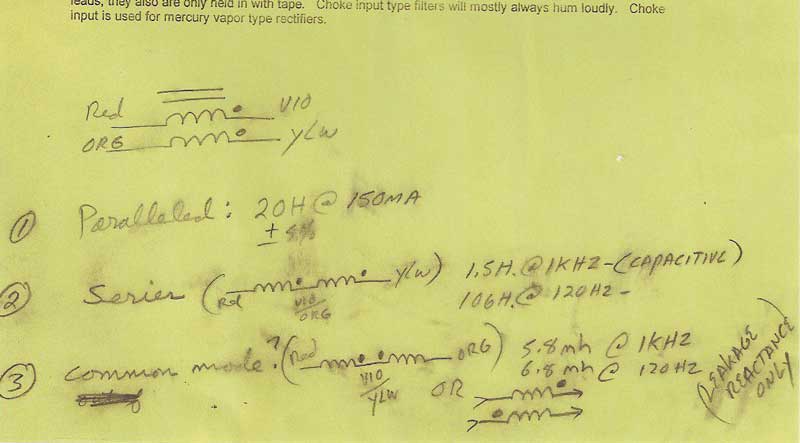 leads, they also are only held in with tape. Choke input type filters will mostly always hum loudly. Choke
input is used for mercury vapor type rectifiers.
Red VIO
ORG YLW
① Paralleled: 20H @ 150MA
±
② Series (Red VIO/ORG YLW) 1.5H. @ 1KHZ - (CAPACITIVE)
106H. @ 120HZ -
③ Common mode? (Red VIO/YLW ORG) 5.8mh @ 1KHZ
6.8mh @ 120HZ
OR
(LEAKAGE
REACTANCE
ONLY)